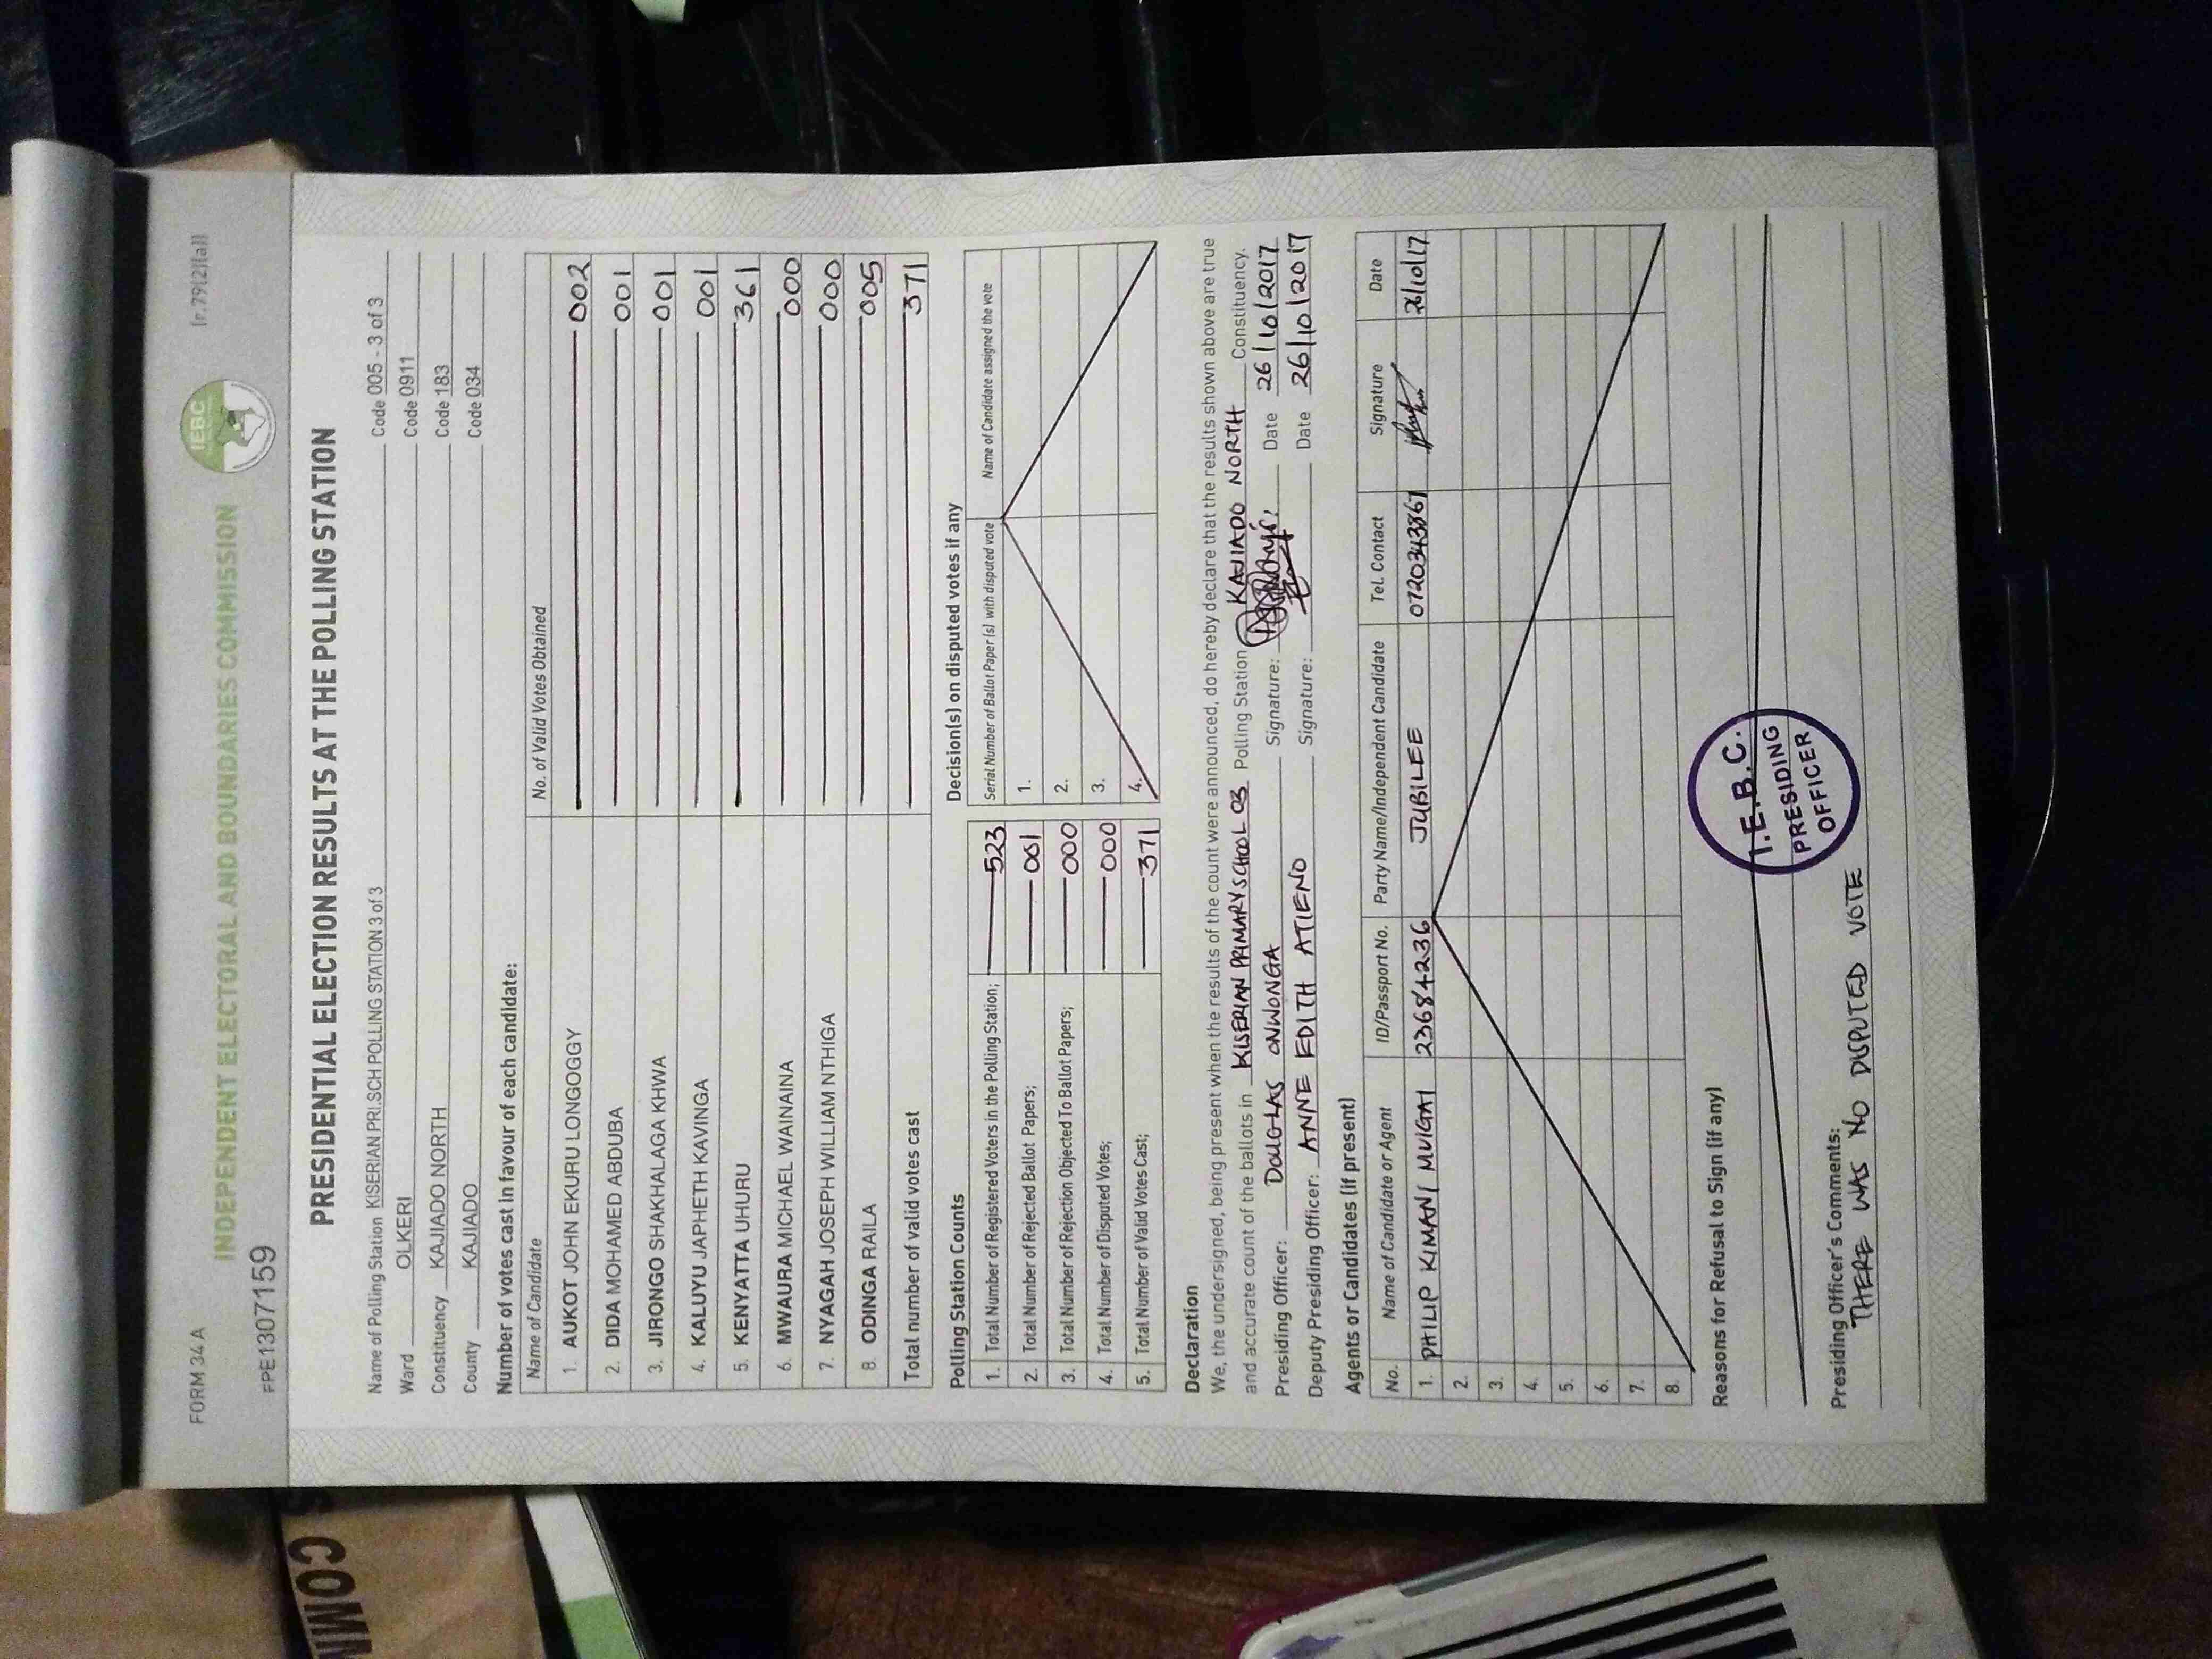 FORM 34 A
[r.79(2)(a)]
INDEPENDENT ELECTORAL AND BOUNDARIES COMMISSION
IEBC
FPE1307159
PRESIDENTIAL ELECTION RESULTS AT THE POLLING STATION
Name of Polling Station KISERIAN PRI.SCH POLLING STATION 3 of 3 Code 005 - 3 of 3
Ward OLKERI Code 0911
Constituency KAJIADO NORTH Code 183
County KAJIADO Code 034
Number of votes cast in favour of each candidate:
Name of Candidate No. of Valid Votes Obtained
1. AUKOT JOHN EKURU LONGOGGY 002
2. DIDA MOHAMED ABDUBA 001
3. JIRONGO SHAKHALAGA KHWA 001
4. KALUYU JAPHETH KAVINGA 001
5. KENYATTA UHURU 361
6. MWAURA MICHAEL WAINAINA 000
7. NYAGAH JOSEPH WILLIAM NTHIGA 000
8. ODINGA RAILA 005
Total number of valid votes cast 371
Polling Station Counts
1. Total Number of Registered Voters in the Polling Station; 523
2. Total Number of Rejected Ballot Papers; 001
3. Total Number of Rejection Objected To Ballot Papers; 000
4. Total Number of Disputed Votes; 000
5. Total Number of Valid Votes Cast; 371
Decision(s) on disputed votes if any
Serial Number of Ballot Paper(s) with disputed vote Name of Candidate assigned the vote
1.
2.
3.
4.
Declaration
We, the undersigned, being present when the results of the count were announced, do hereby declare that the results shown above are true
and accurate count of the ballots in KISERIAN PRIMARY SCHOOL 03 Polling Station KAJIADO NORTH Constituency.
Presiding Officer: DOUGLAS ONWONGA Signature: Date 26/10/2017
Deputy Presiding Officer: ANNE EDITH ATIENO Signature: Date 26/10/2017
Agents or Candidates (if present)
No. Name of Candidate or Agent ID/Passport No. Party Name/Independent Candidate Tel. Contact Signature Date
1. PHILIP KIMANI MUIGAI 23684236 JUBILEE 0720343867 26/10/17
2.
3.
4.
5.
6.
7.
8.
Reasons for Refusal to Sign (if any)
I.E.B.C.
PRESIDING
OFFICER
Presiding Officer's Comments:
THERE WAS NO DISPUTED VOTE